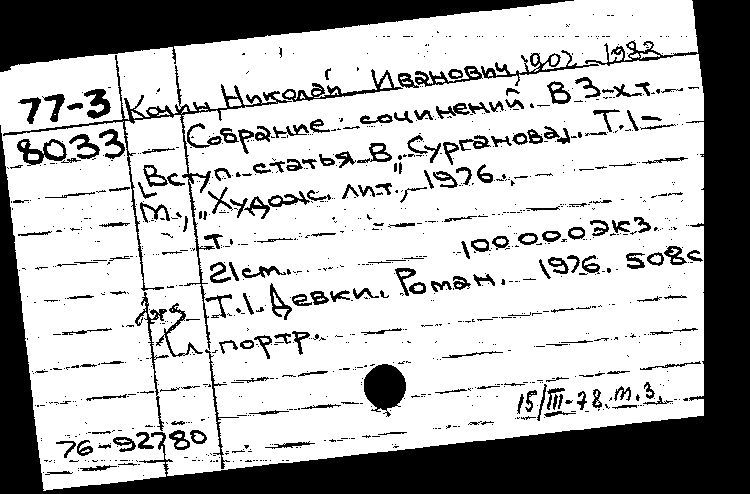 77-3 Кочин, Николай Иванович, 1902-1982
8033 Собрание сочинений. В 3-х т.
[Вступ. статья В. Сурганова]. Т.1-
М., "Худож. лит.", 1976.
т.
21 см. 100000 экз.
Т.1. Девки. Роман. 1976. 508 с
1 л. портр.
15/III-78. т.3.
76-92780